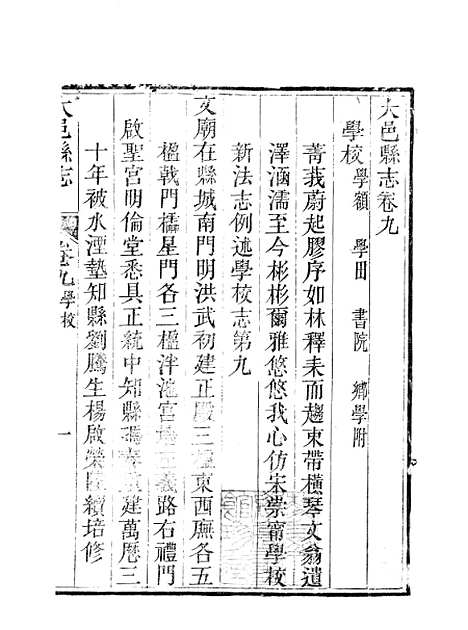 大邑縣志卷九
學校 學額 學田 書院 鄉學附
菁莪蔚起膠序如林釋耒而趨束帶橫琴文翁遺
澤涵濡至今彬彬爾雅悠悠我心仿宋崇甯學校
新法志例述學校志第九
文廟在縣城南門明洪武初建正殿三楹東西廡各五
楹戟門櫺星門各三楹泮池宮牆 義路右禮門
啟聖宮明倫堂悉具正統中知縣 建萬厯三
十年被水湮墊知縣劉騰生楊啟榮 續培修
大邑縣志 卷九 學校 一